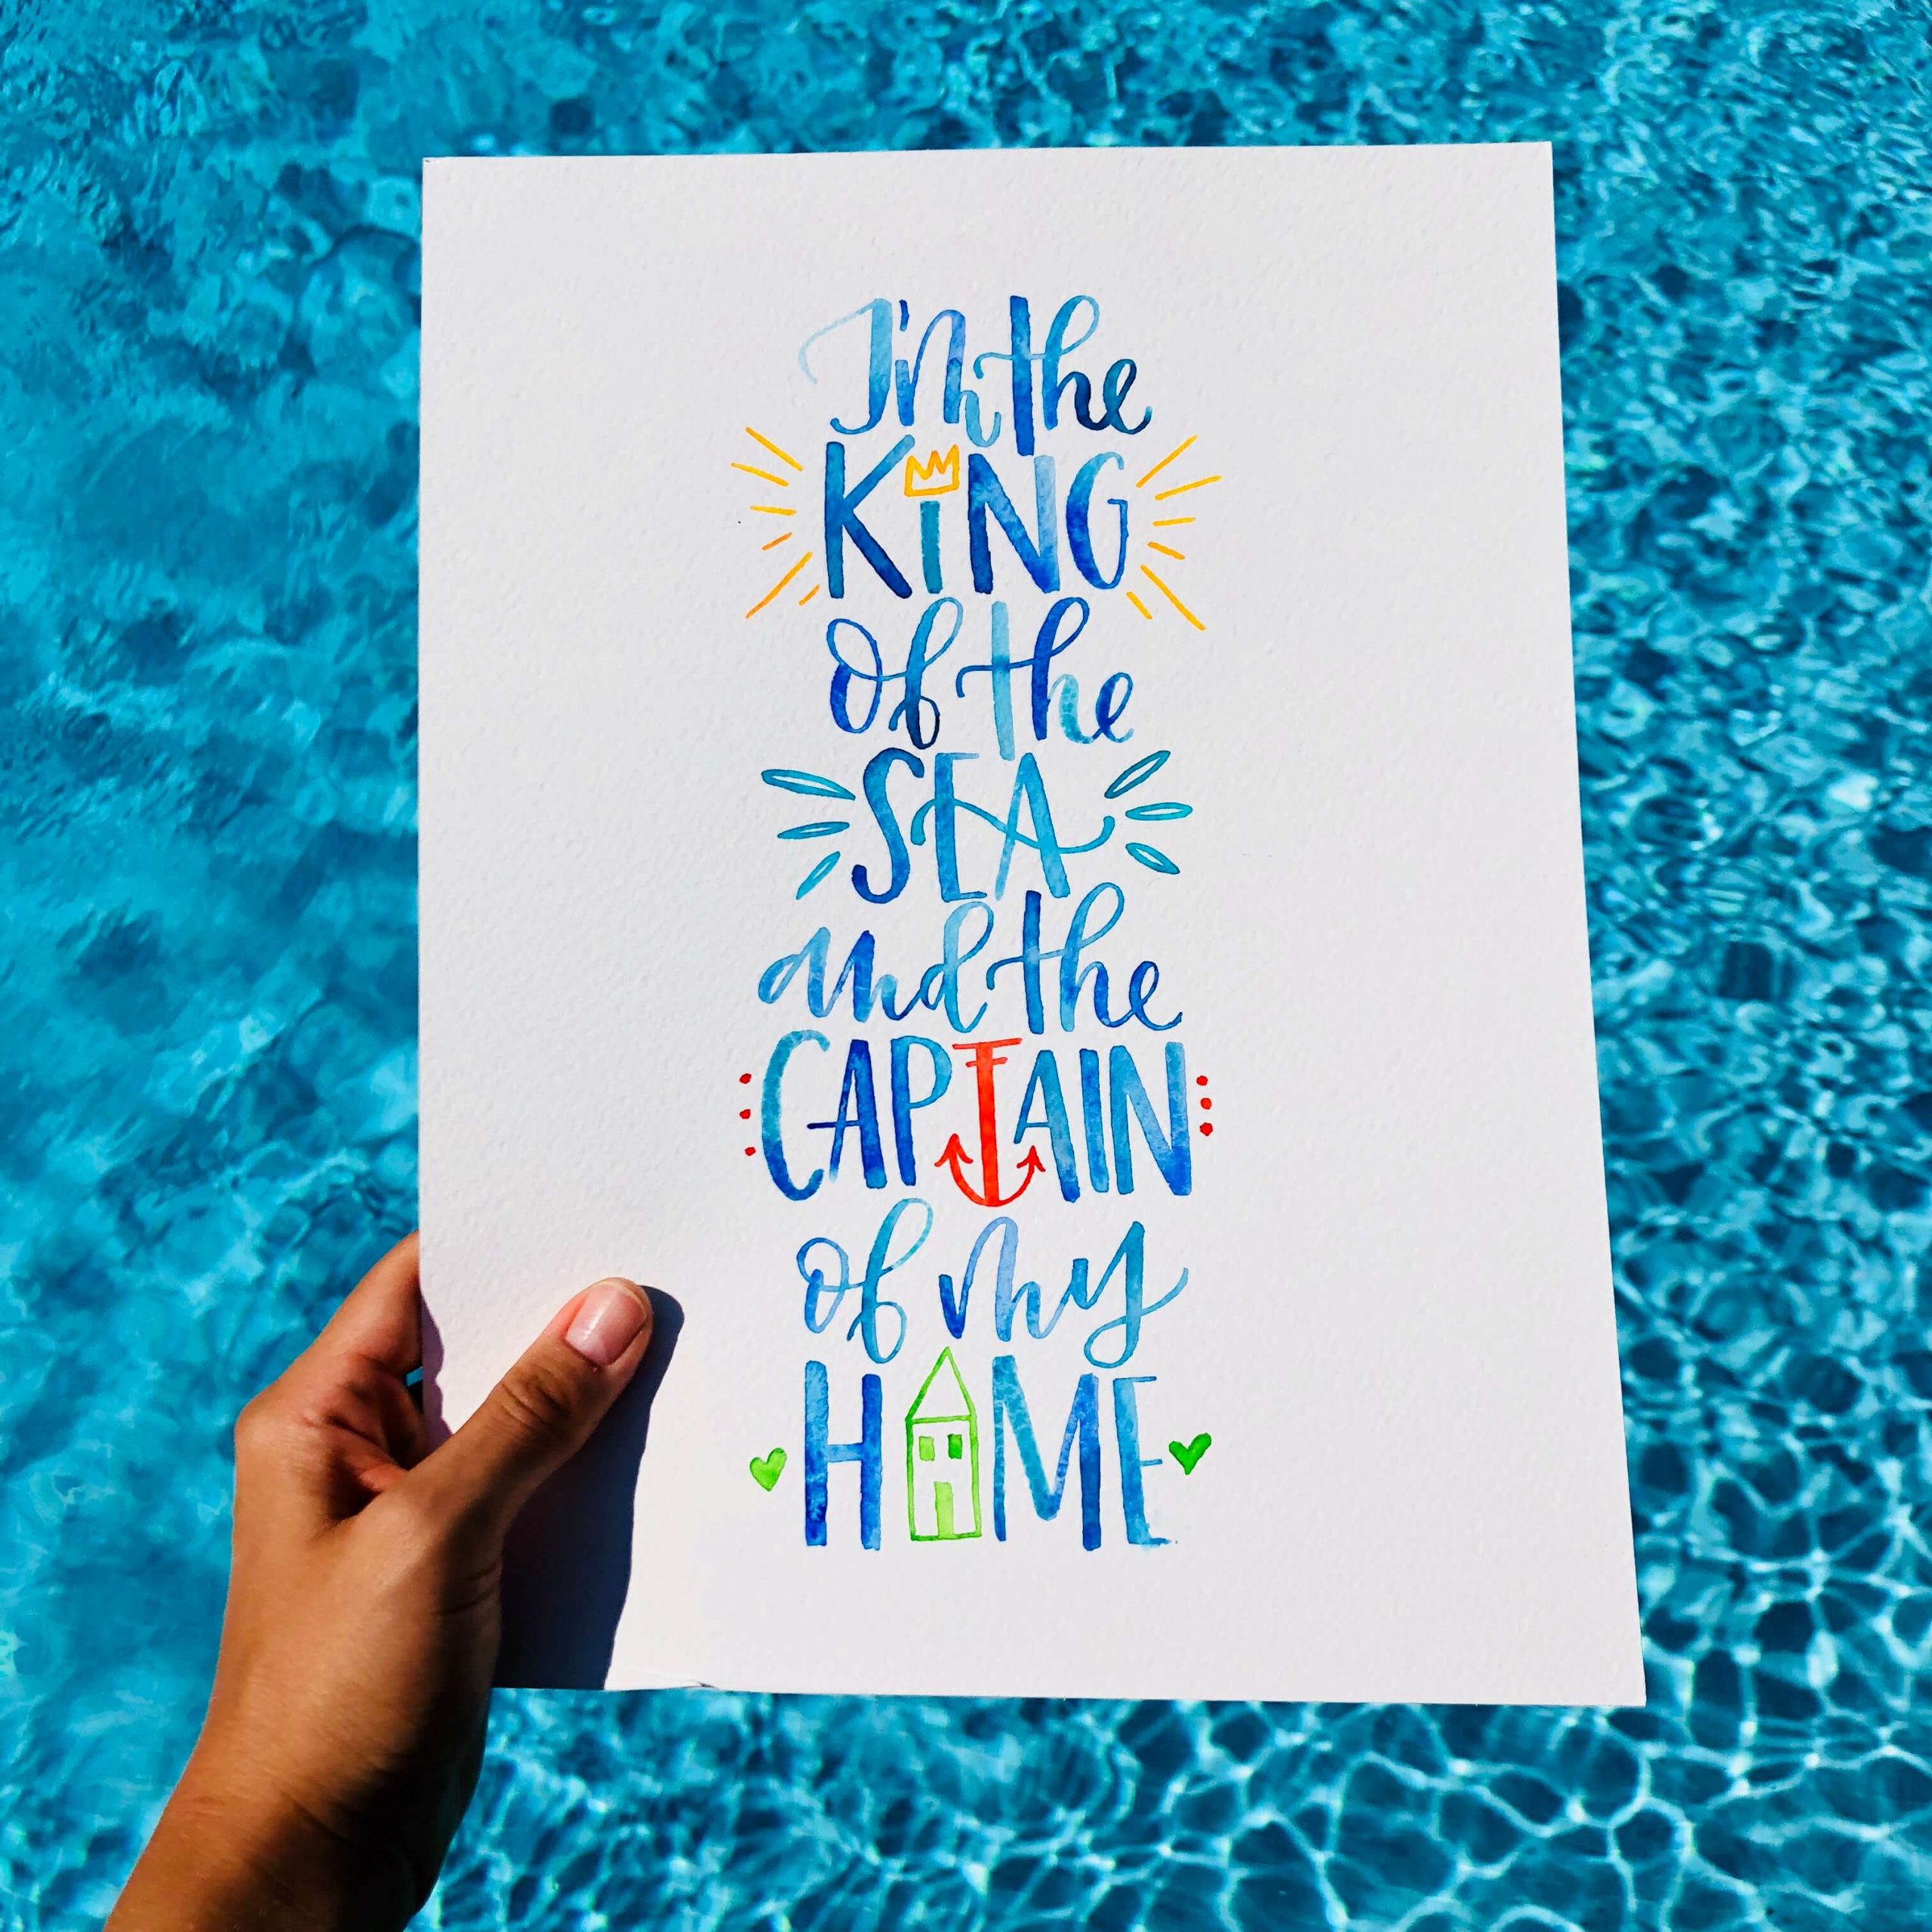 I'm the
KiNG
of the
SEA
and the
CAPTAIN
of my
HOME